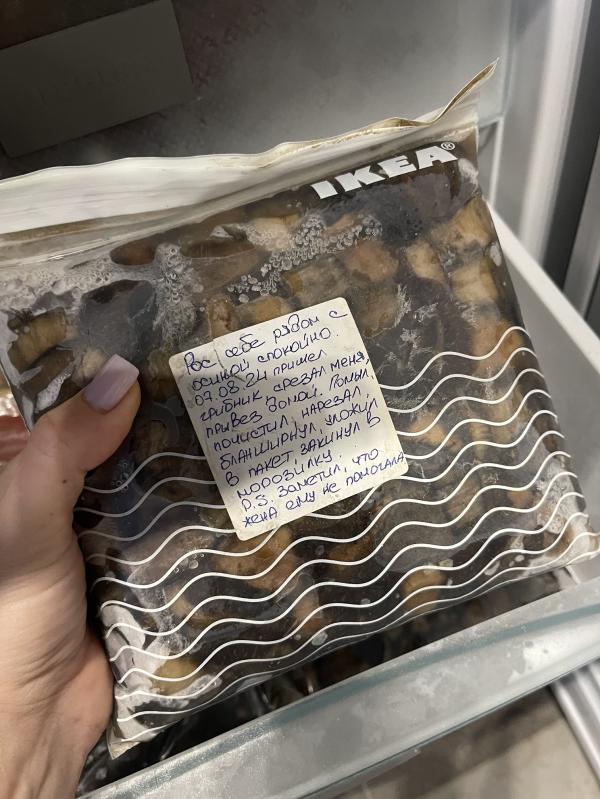 IKEA®
Рос себе рядом с
осиной спокойно.
07.08.24 пришел
грибник срезал меня,
привез домой. Помыл,
почистил, нарезал,
бланширнул, уложил
в пакет, закинул в
морозилку.
P.S. заметил, что
жена ему не помогала